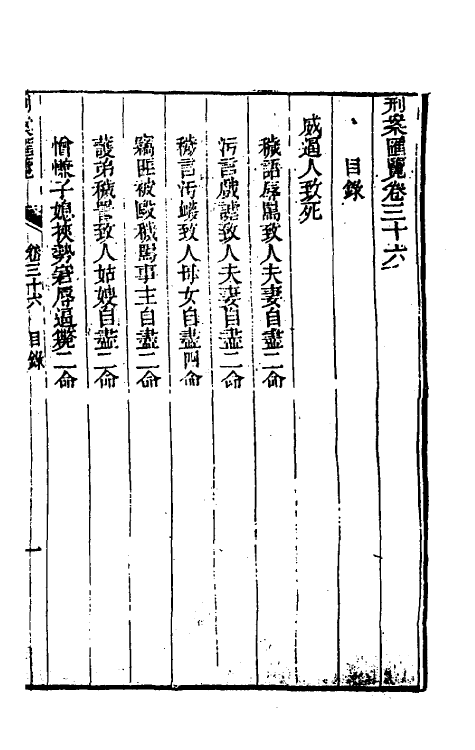 刑案匯覽卷三十六
目錄
威逼人致死
穢語辱罵致人夫妻自盡二命
污言戲謔致人夫妻自盡二命
穢言污衊致人母女自盡四命
竊匪被毆穢罵事主自盡二命
護弟穢詈致人姑嫂自盡二命
憎嫌子媳挾勢窘辱逼斃二命
刑案匯覽 卷三十六 目錄 一